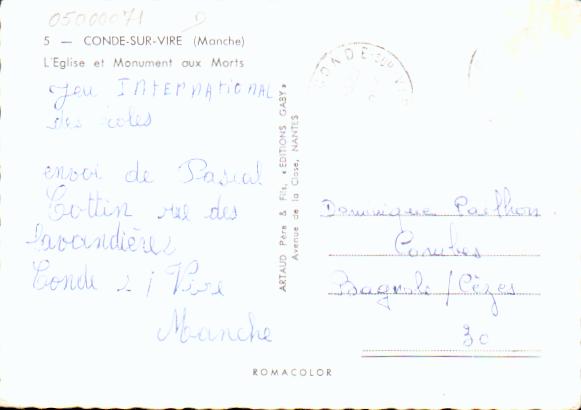 05000071
5 — CONDE-SUR-VIRE (Manche)
L'Eglise et Monument aux Morts
Jeu INTERNATIONAL
des écoles
envoi de Pascal
Cottin rue des
lavandières
Conde s / Vire
Manche
ARTAUD Père & Fils, « EDITIONS GABY »
Avenue de la Close, NANTES
CONDE-SUR-VIRE
Dominique
Bagnols / Cèzes
30
ROMACOLOR